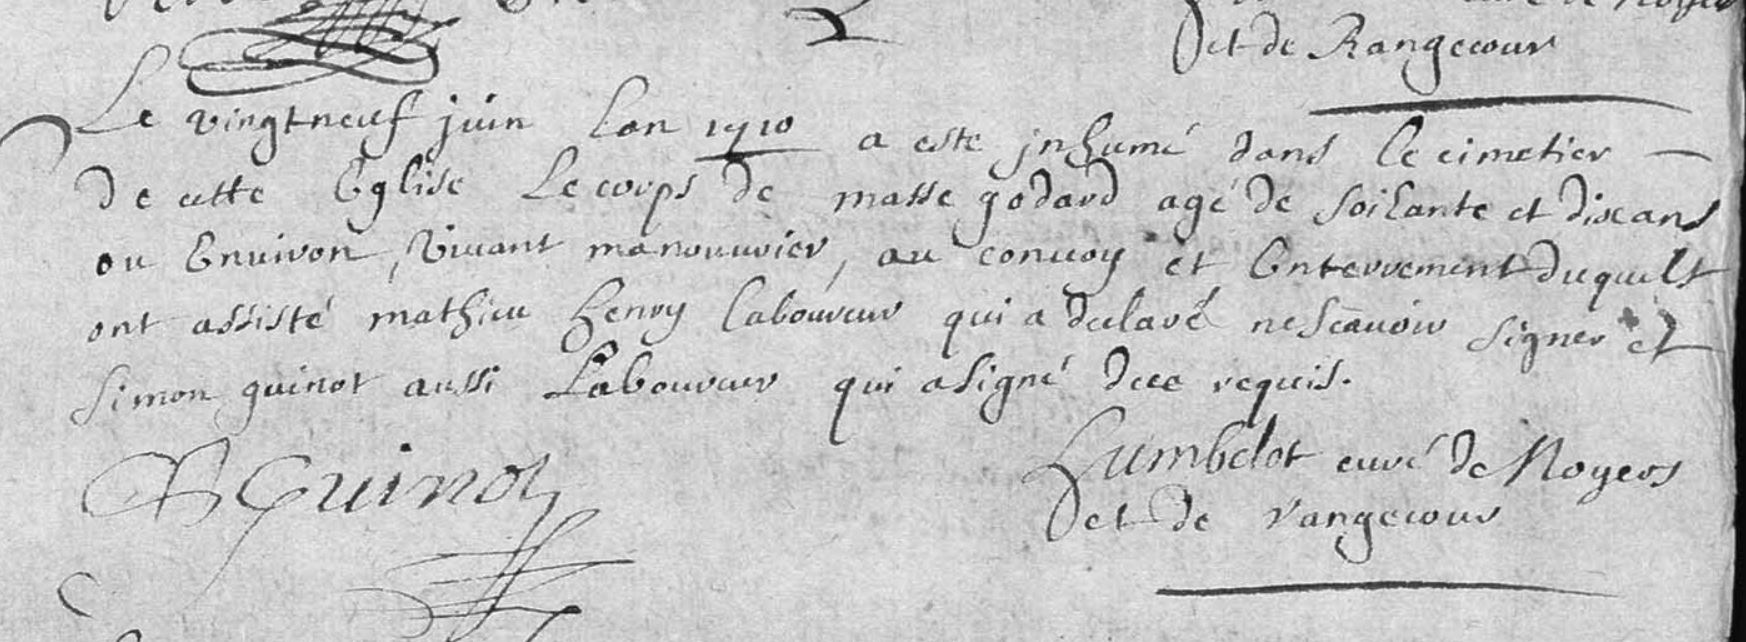 et de Rangecour
Le vingtneuf juin lan 1710 a este jnhumé dans le cimetier
de cette Eglise Le corps de masse godard agé de soixante et dix ans
ou Environ, vivant manouvrier, au convoy et Enterrement duquelt
ont assisté mathieu henry laboureur qui a declaré ne scavoir signer et
simon guinot aussi Laboureur qui a signé de ce requis.
S Guinot
Humbelot curé de Noyers
et de rangecour